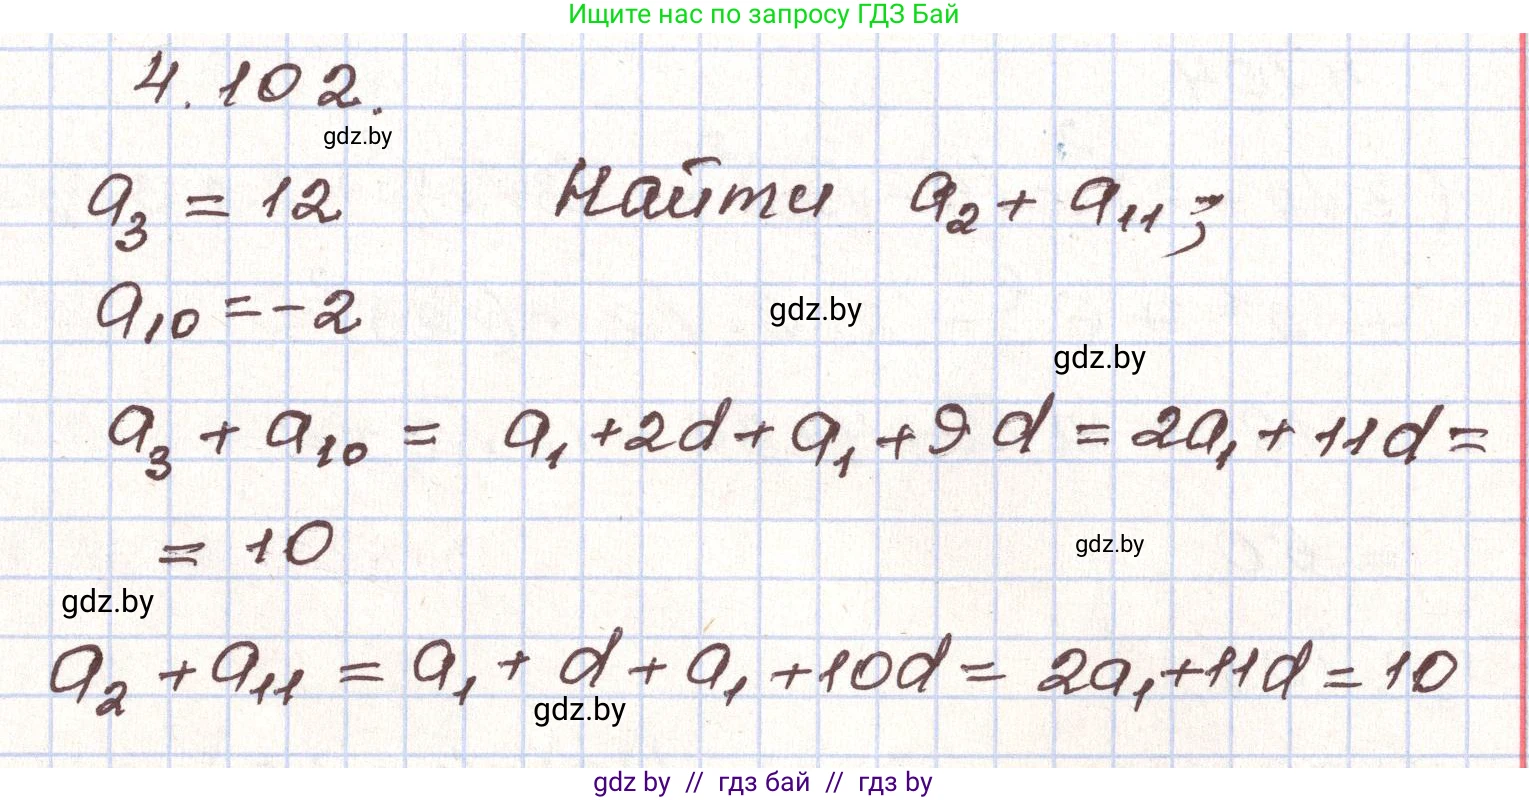 Ищите нас по запросу ГДЗ Бай
4.102.
gdz.by
a₃ = 12 Найти a₂ + a₁₁;
a₁₀ = -2
gdz.by
gdz.by
a₃ + a₁₀ = a₁ + 2d + a₁ + 9d = 2a₁ + 11d =
= 10
gdz.by
gdz.by
a₂ + a₁₁ = a₁ + d + a₁ + 10d = 2a₁ + 11d = 10
gdz.by
gdz by // гдз бай // гдз by